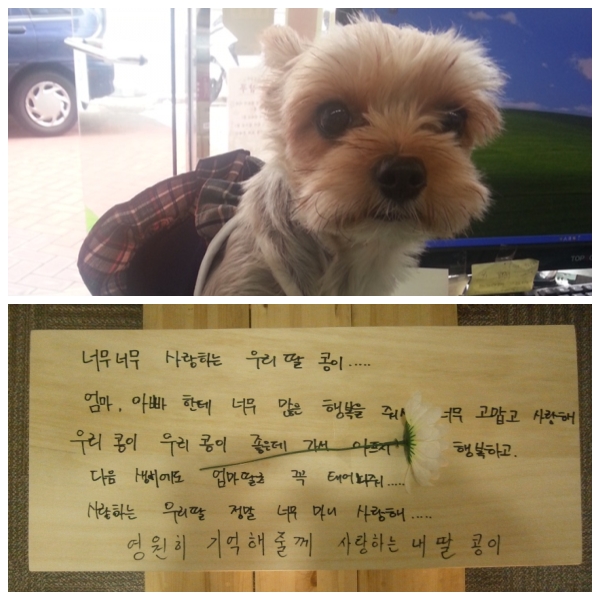 너무너무 사랑하는 우리 딸 콩이.....
엄마, 아빠 한테 너무 많은 행복을 줘서 너무 고맙고 사랑해
우리 콩이 우리 콩이 좋은데 가서 아프지 행복하고.
다음 생에도 엄마딸로 꼭 태어나줘.....
사랑하는 우리딸 정말 너무 마니 사랑해.....
영원히 기억해줄께 사랑하는 내 딸 콩이